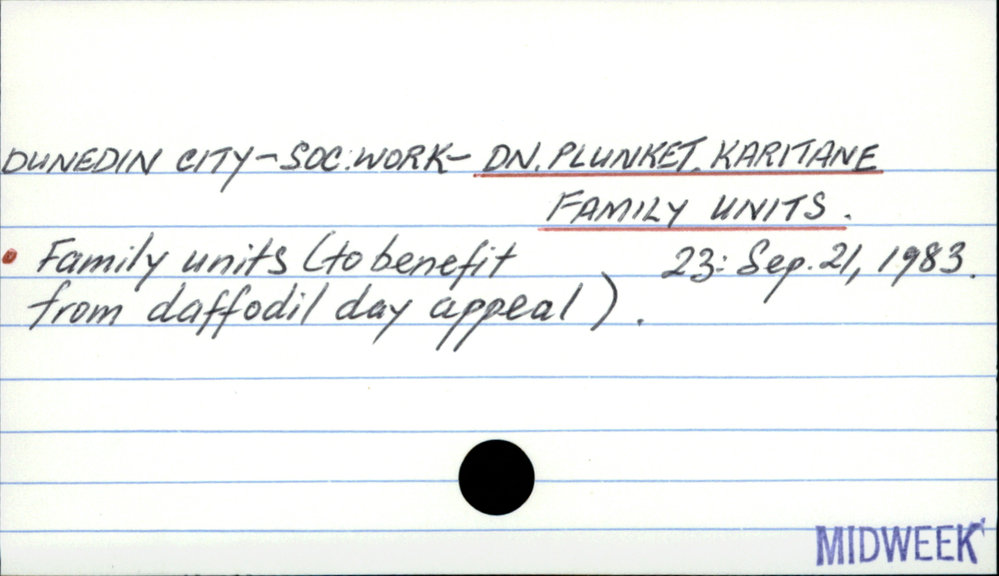 DUNEDIN CITY – SOC. WORK – DN. PLUNKET. KARITANE
FAMILY UNITS.
• Family units (to benefit 23: Sep. 21, 1983.
from daffodil day appeal).
MIDWEEK